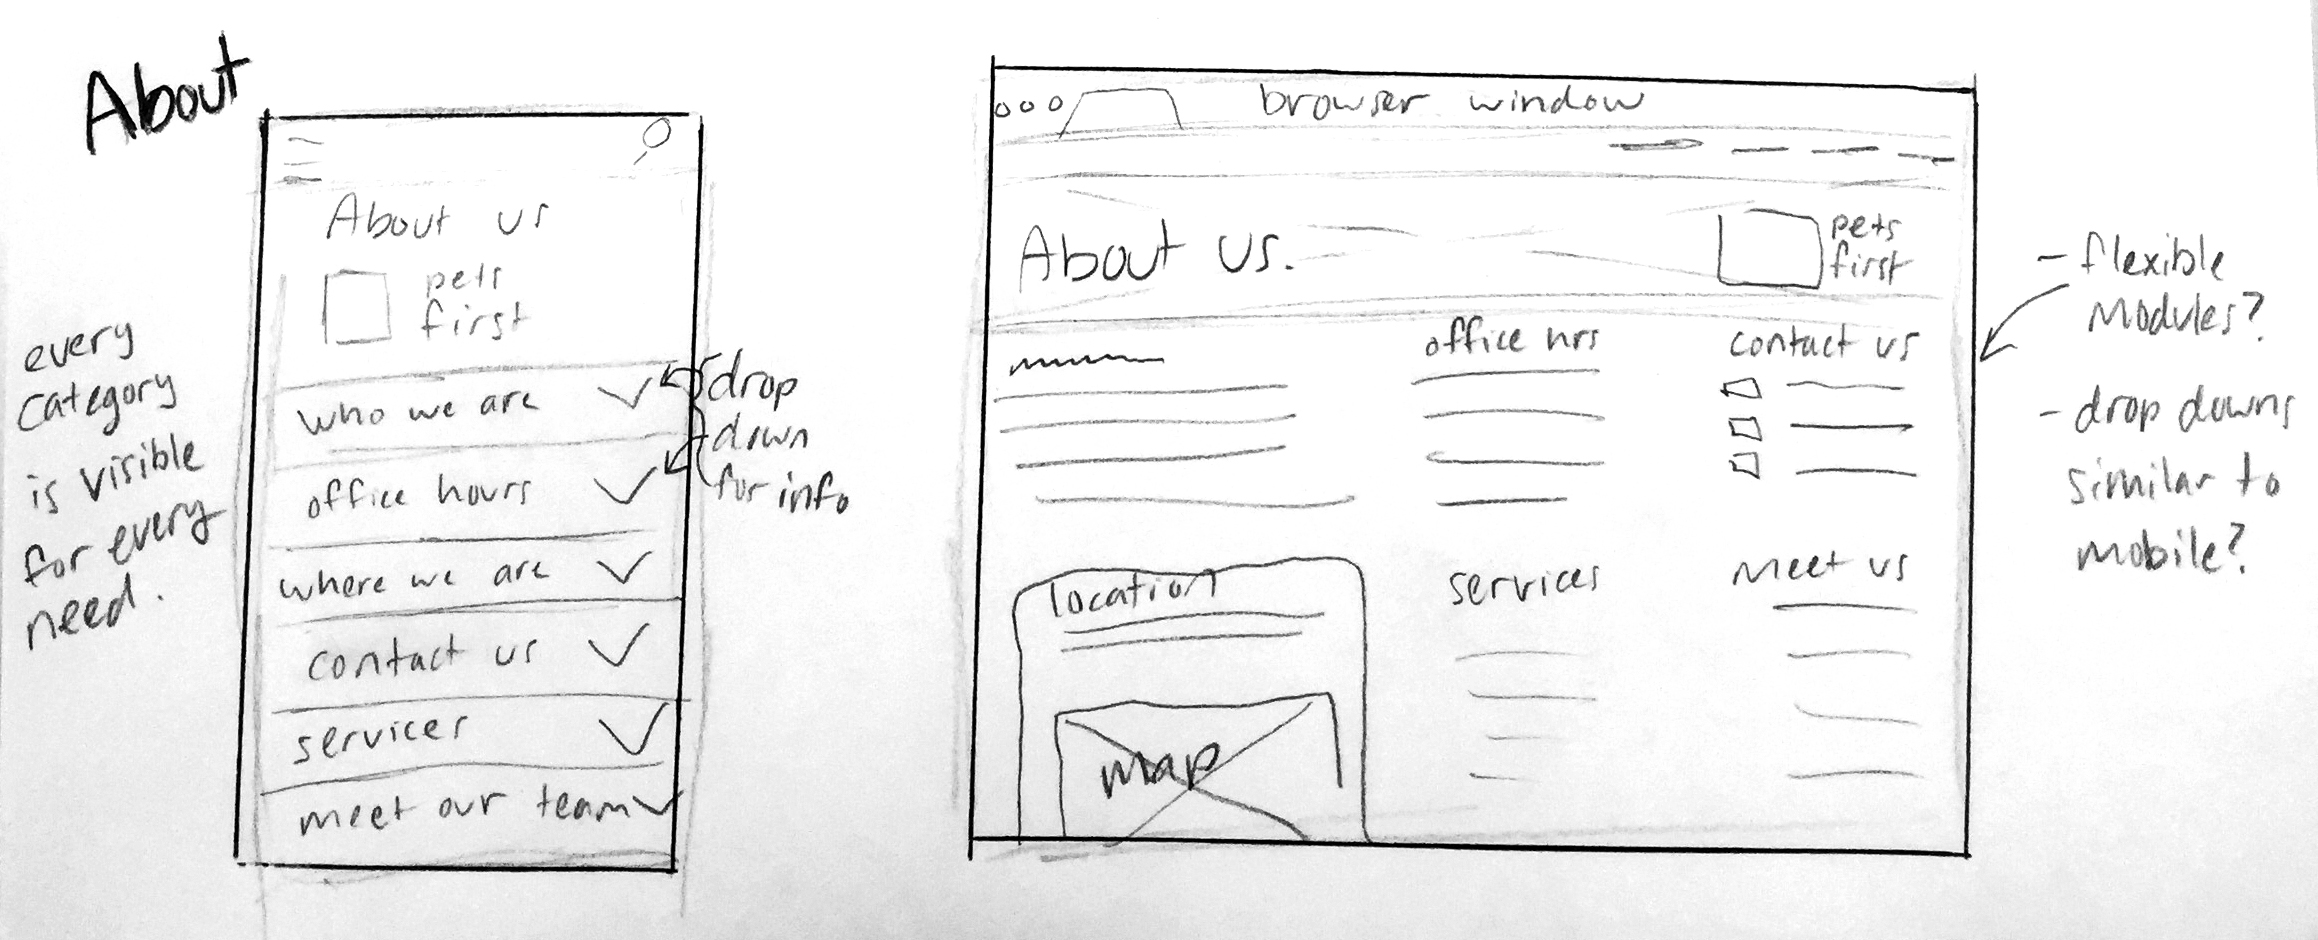 About
every
category
is visible
for every
need.
About us
pets
first
who we are
office hours
where we are
contact us
services
meet our team
drop
down
for info
browser window
About us.
pets
first
office hrs
contact us
location
map
services
Meet us
- flexible
Modules?
- drop downs
similar to
mobile?